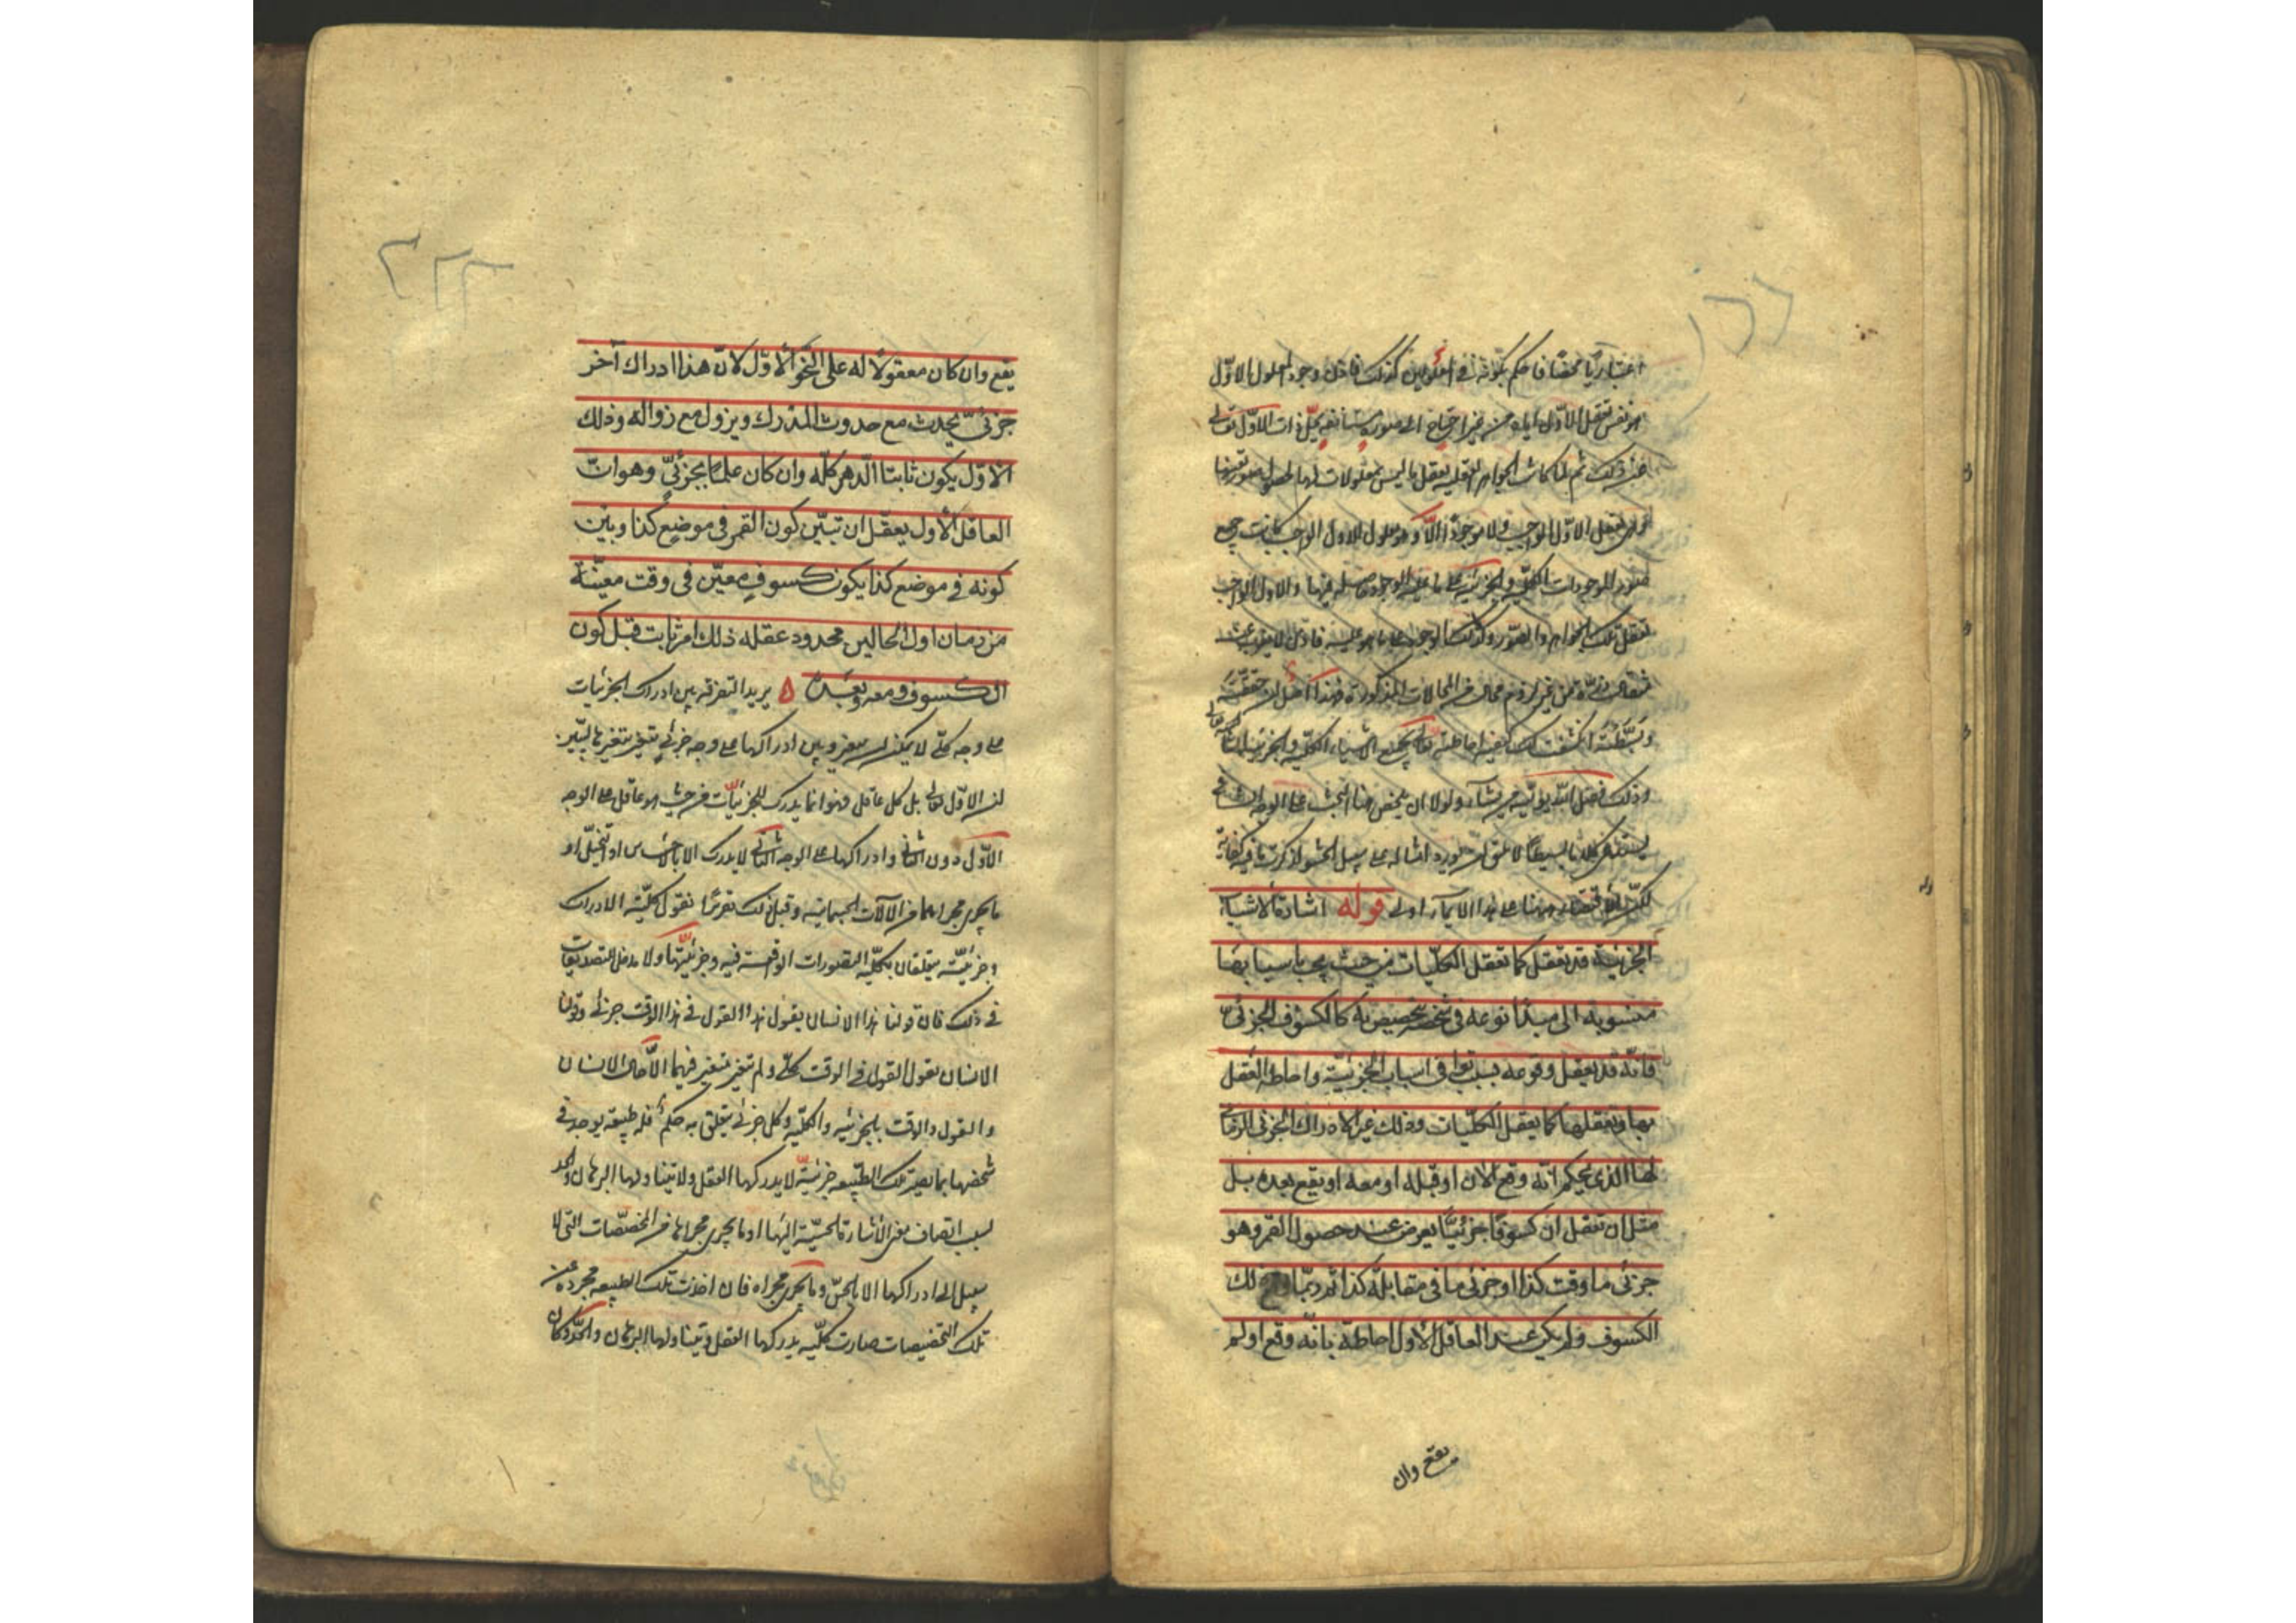 اعتباريا محضا فاحكم بكونه في المعلولين كذلك فاذن وجود المعلول الاول
هو نفس تعقل الاول اياه من غير احتياج الى صورة مستانفة تحل ذات الاول تعالى
عن ذلك ثم لما كانت الجواهر العقلية تعقل ما ليس بمعلولات لها بحصول صور فيها
وهي تعقل الاول الواجب ولا موجود الا وهو معلول للاول الواجب كانت جميع
صور الموجودات الكلية والجزئية على ما عليه الوجود حاصلة فيها والاول الواجب
تعقل تلك الجواهر والصور وكذلك الوجود على ما هو عليه فاذن لا يعزب عنه
مثقال ذرة من غير لزوم محال من المحالات المذكورة فهذا اصل ان حققته
وبسطته انكشفت لك كيفية احاطته تعالى بجميع الاشياء الكلية والجزئية ان شاء الله تعالى
وذلك فضل الله يؤتيه من يشاء ولولا ان تلخيص هذا البحث على الوجه الشافي
يستدعي كلاما بسيطا لا يليق ان نورد امثاله على سبيل الحشو لذكرت ما فيه كفاية
لكن الاقتصار ههنا على هذا الايماء اولى قوله اشارة الاشياء
الجزئية قد تعقل كما تعقل الكليات من حيث يجب باسبابها
منسوبة الى مبدا نوعه في شخصه تخصص به كالكسوف الجزئي
فانه قد يعقل وقوعه بسبب توافي اسباب الجزئية واحاطة العقل
بها وتعقلها كما يعقل الكليات وذلك غير الادراك الجزئي الزماني
لها الذي يحكم انه وقع الان او قبله او معه او يقع بعده بل
مثل ان تعقل ان كسوفا جزئيا يعرض عند حصول القمر وهو
جزئي ما وقت كذا وهو جزئي ما في مقابلة كذا ثم ربما وقع ذلك
الكسوف ولم يكن عند العاقل الاول احاطة بانه وقع او لم
يقع وان
٢٢٢
يقع وان كان معقولا له على النحو الاول لان هذا ادراك آخر
جزئي يحدث مع حدوث المدرك ويزول مع زواله وذلك
الاول يكون ثابتا الدهر كله وان كان علما بجزئي وهو ان
العاقل الاول يعقل ان تبين كون القمر في موضع كذا وبين
كونه في موضع كذا يكون كسوف معين في وقت معينة
من زمان اول الحالين محدود عقله ذلك امر ثابت قبل كون
الكسوف ومعه وبعده ۵ يريد التفرقة بين ادراك الجزئيات
على وجه كلي لا يمكن ان يتغير وبين ادراكها على وجه جزئي متغير بتغيرها ليتبين
ان الاول تعالى بل كل عاقل فهو انما يدرك الجزئيات من حيث هو عاقل على الوجه
الاول دون الثاني وادراكها على الوجه الثاني لا يدرك الا بالاحساس او التخيل او
ما يجري مجراهما من الآلات الجسمانية وقبل ذلك تقريرا نقول كلية الادراك
وجزئيته يتعلقان بكلية التصورات الواقعة فيه وجزئيتها ولا مدخل للتصديقات
في ذلك فان قولنا هذا الانسان يقول هذا القول في هذا الوقت جزئي وقولنا
الانسان يقول القول في الوقت كلي ولم تتغير متغير فيهما الا حال الانسان
والقول والوقت بالجزئية والكلية وكل جزئي يتعلق به حكم فله طبيعة يوجد في
شخصها بما يصير تلك الطبيعة جزئية لا يدركها العقل ولا يتناولها البرهان والحد
بسبب انضياف معنى الاشارة الحسية اليها او ما يجري مجراها من المخصصات التي لا
سبيل الى ادراكها الا بالحس وما يجري مجراه فان اخذت تلك الطبيعة مجردة عن
تلك التخصيصات صارت كلية يدركها العقل ويتناولها البرهان والحد وكان